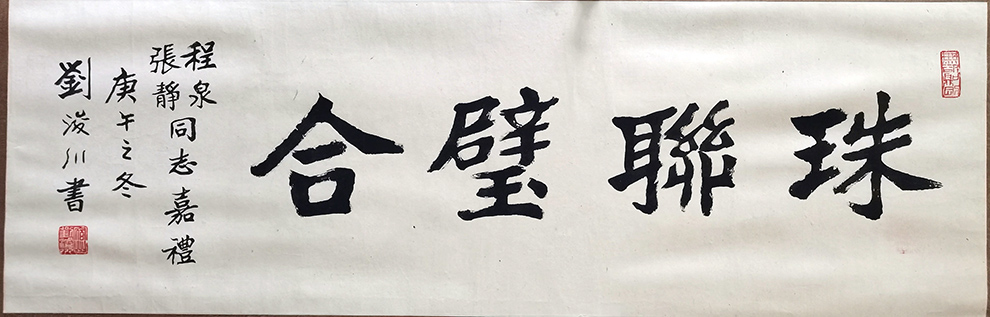 珠聯璧合
程泉
張靜同志嘉禮
庚午之冬
劉浚川書